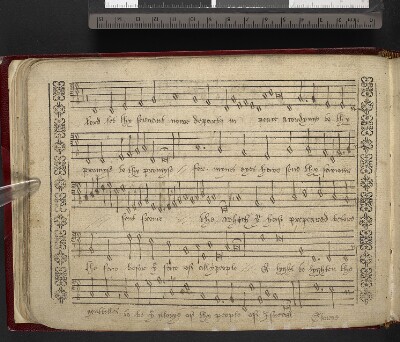 lord let thy servant nowe departe in peace accordynge to thy
promyse to thy promyse // for myne eyes have sene thy savinge
sent savinge // the whych yu hast prepared before
the face before ye face of all people // A lyght to lyghten the
gentelles & to be ye glorye of thy people of Israell